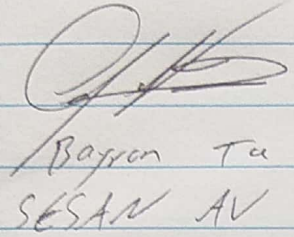 Bayron Tu
SESAN AV